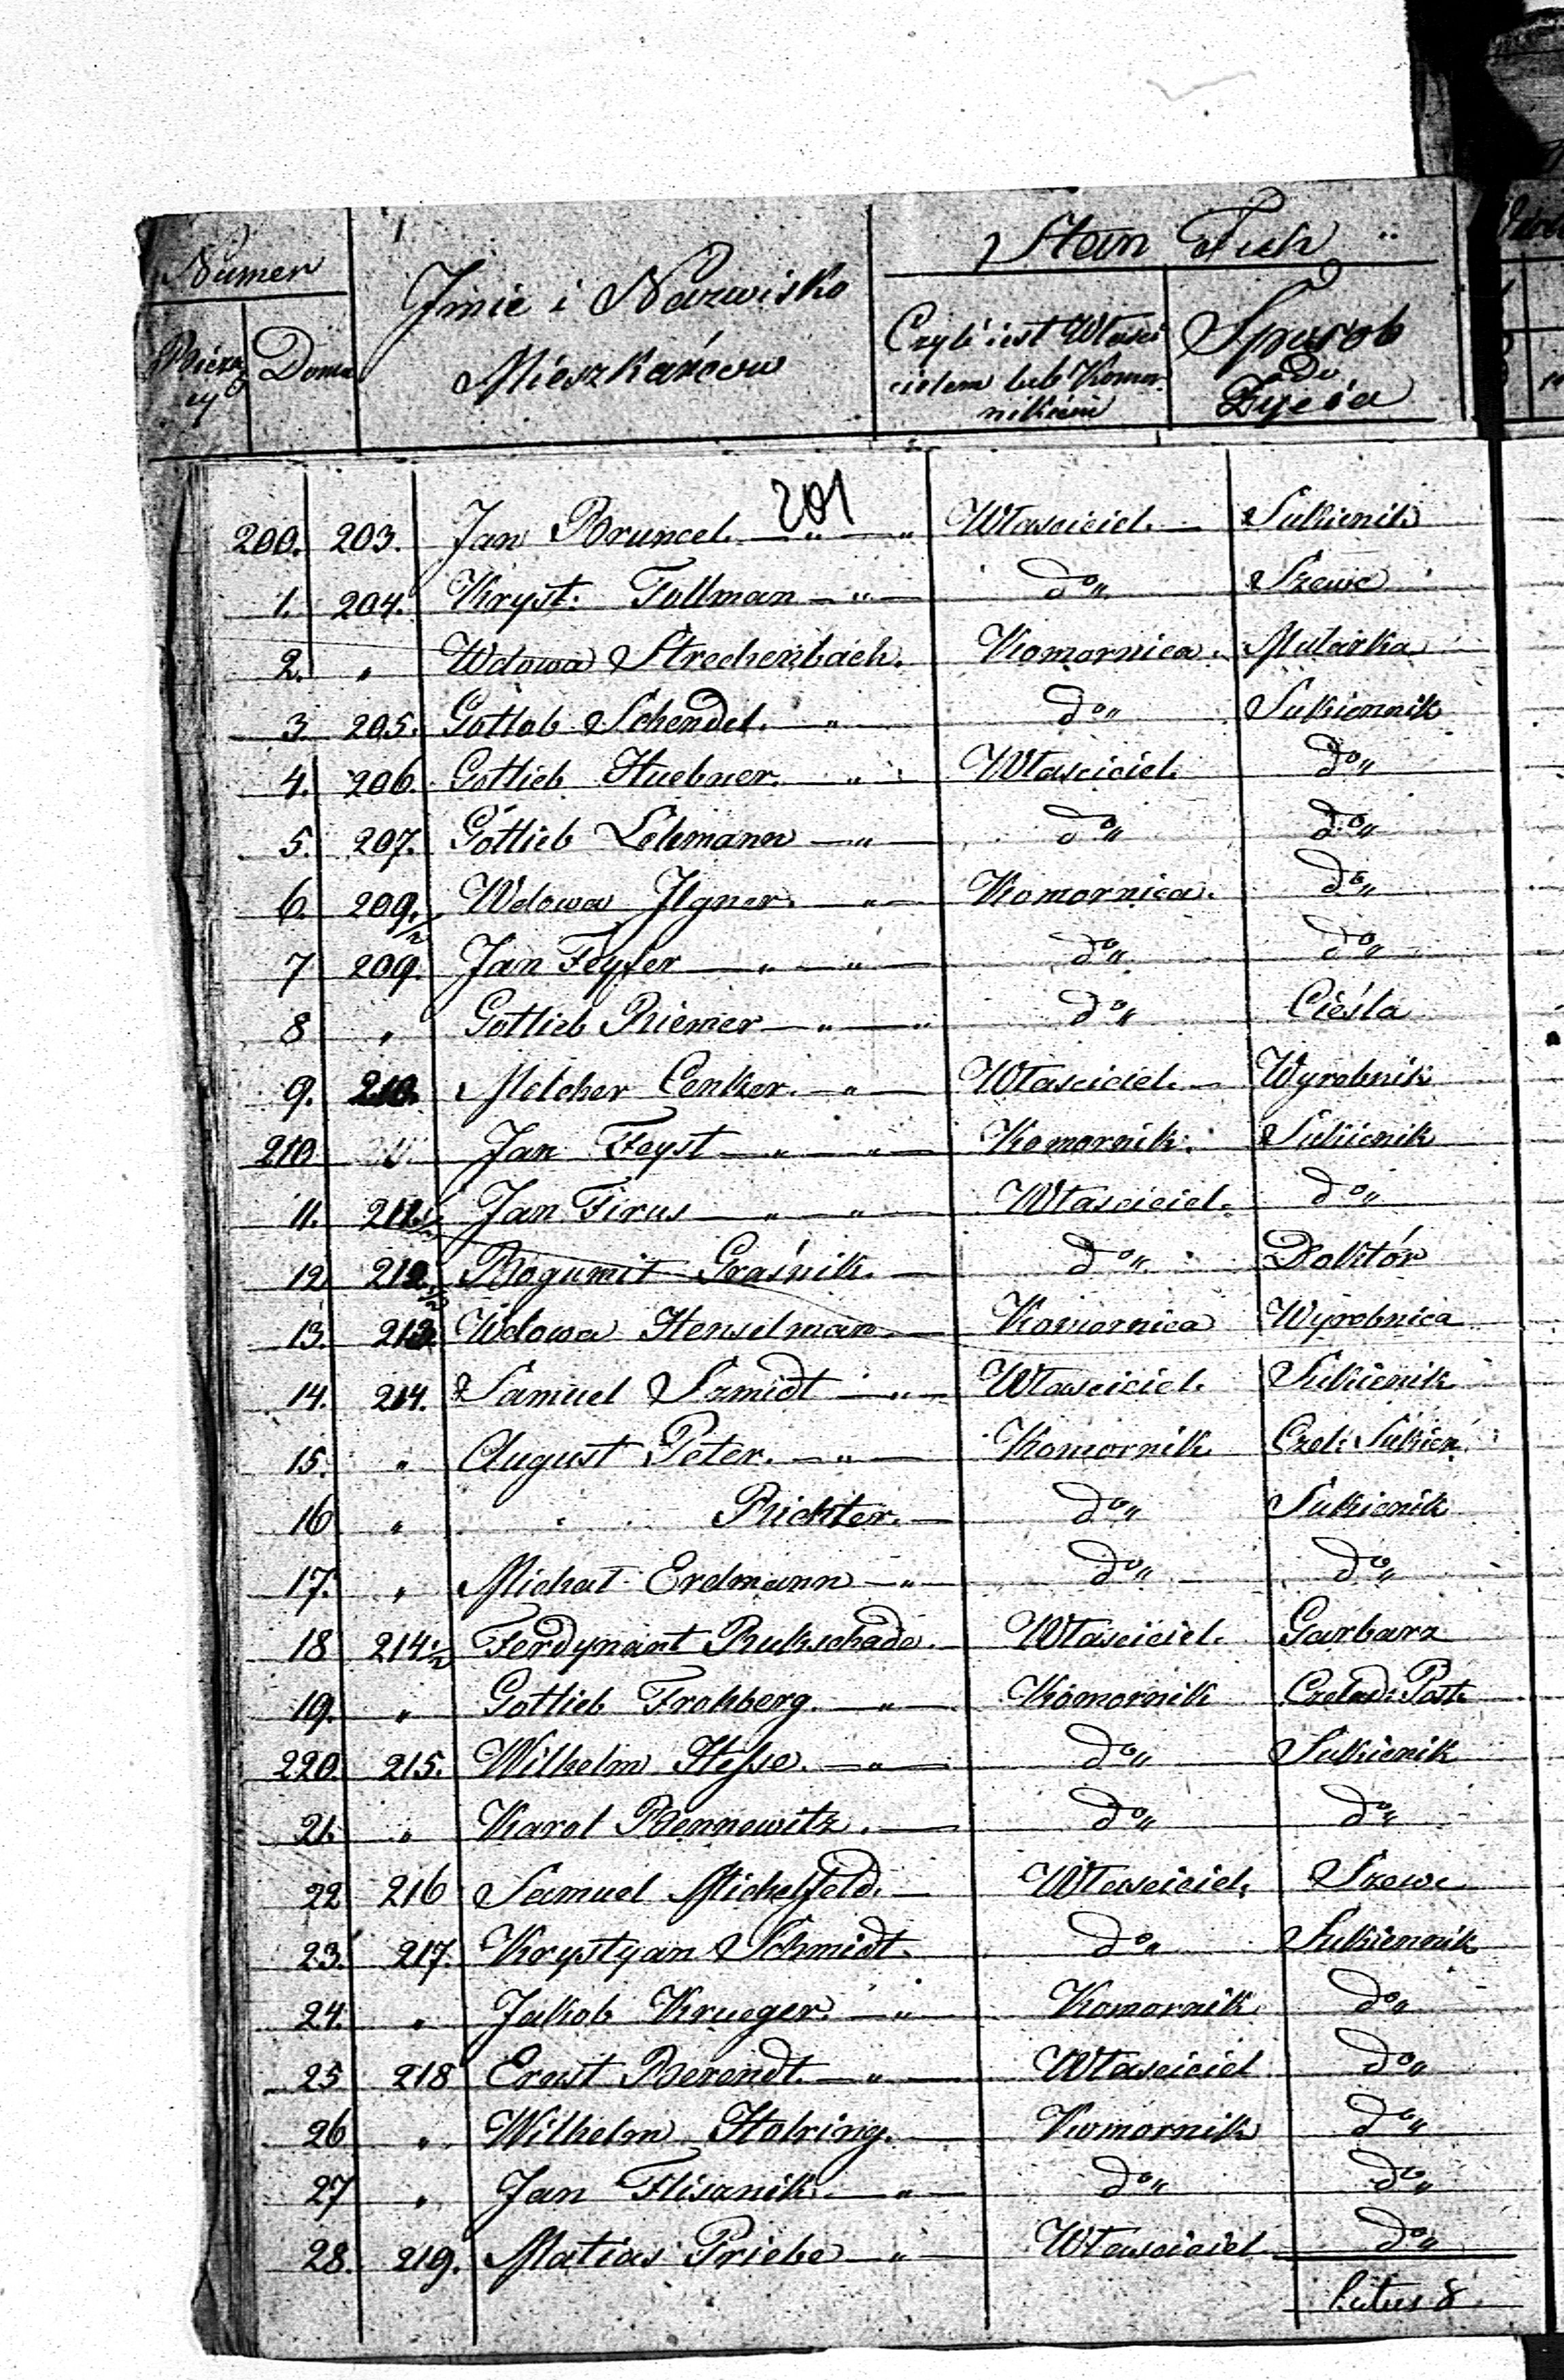 Numer
Imie i Nazwisko
Mieszkańców
Stan Tych
Bieżą
cy
Domu
Czyli iest Właści
cielem lub Komor
nikiem
Sposob
do
Życia
201
200. 203. Jan Bruncel. — " — " Własciciel. — Sukienik
1. 204. Kryst: Follman — " — do " Szewc
2. " Wdowa Strechenbach. Komornica. Mularka
3. 205. Gotlob Schendel. " — do " Sukiennik
4. 206. Gottlieb Huebner. " Własciciel. do "
5. 207. Gottlieb Lehmann — " — do " do "
6. 209./2 Wdowa Ilgner. — " — Komornica. do "
7 209. Jan Feyfer — " — " — do " do "
8 " Gottlieb Riemer — " — " do " Cieśla
9. 210. Melcher Cenker. — " — Własciciel. — Wyrobnik
210 Jan Feyst — " — " — Komornik. Sukienik
11. 211. Jan Firus — " — " — Własciciel. do "
12 212.1/2 Bogumił Graśnik. — do " Doktór
13. 213. Wdowa Henselman — Komornica Wyrobnica
14. 214. Samuel Szmidt — " — Własciciel. Sukienik
15. " August Peter. — " — Komornik Czel: Sukien.
16 " " Richter. — do " Sukienik
17. " Michał Erdmann — " — do " do "
18 214./2 Ferdynant Rukschade. — Własciciel. Garbarz
19. " Gottlieb Frohberg. — " — Komornik Czelad: Post.
220. 215. Wilhelm Hesse. — " — do " Sukienik
21. " Karol Bennewitz. — do " do "
22 216 Samuel Michelfeld. — Własciciel. Szewc
23. 217. Krystyan Schmidt. do " Sukiennik
24. " Jakob Krueger. — " Komornik do "
25 218 Ernst Berendt. — " — Własciciel do "
26 " Wilhelm Holring. — Komornik do "
27 " Jan Flisznik. — " — do " do "
28. 219. Matias Priebe — " — Własciciel do "
Latus 8